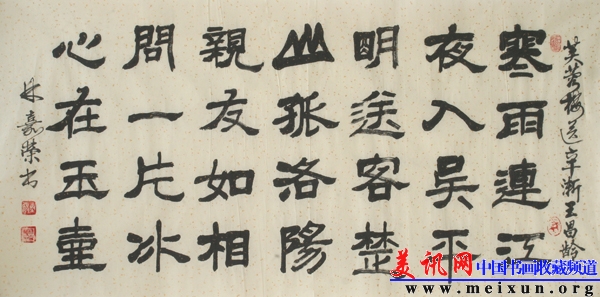 芙蓉樓送辛漸王昌齡
寒雨連江
夜入吳平
明送客楚
山孤洛陽
親友如相
問一片冰
心在玉壺
嘉榮书
美讯网 中国书画收藏频道
www.meixun.org